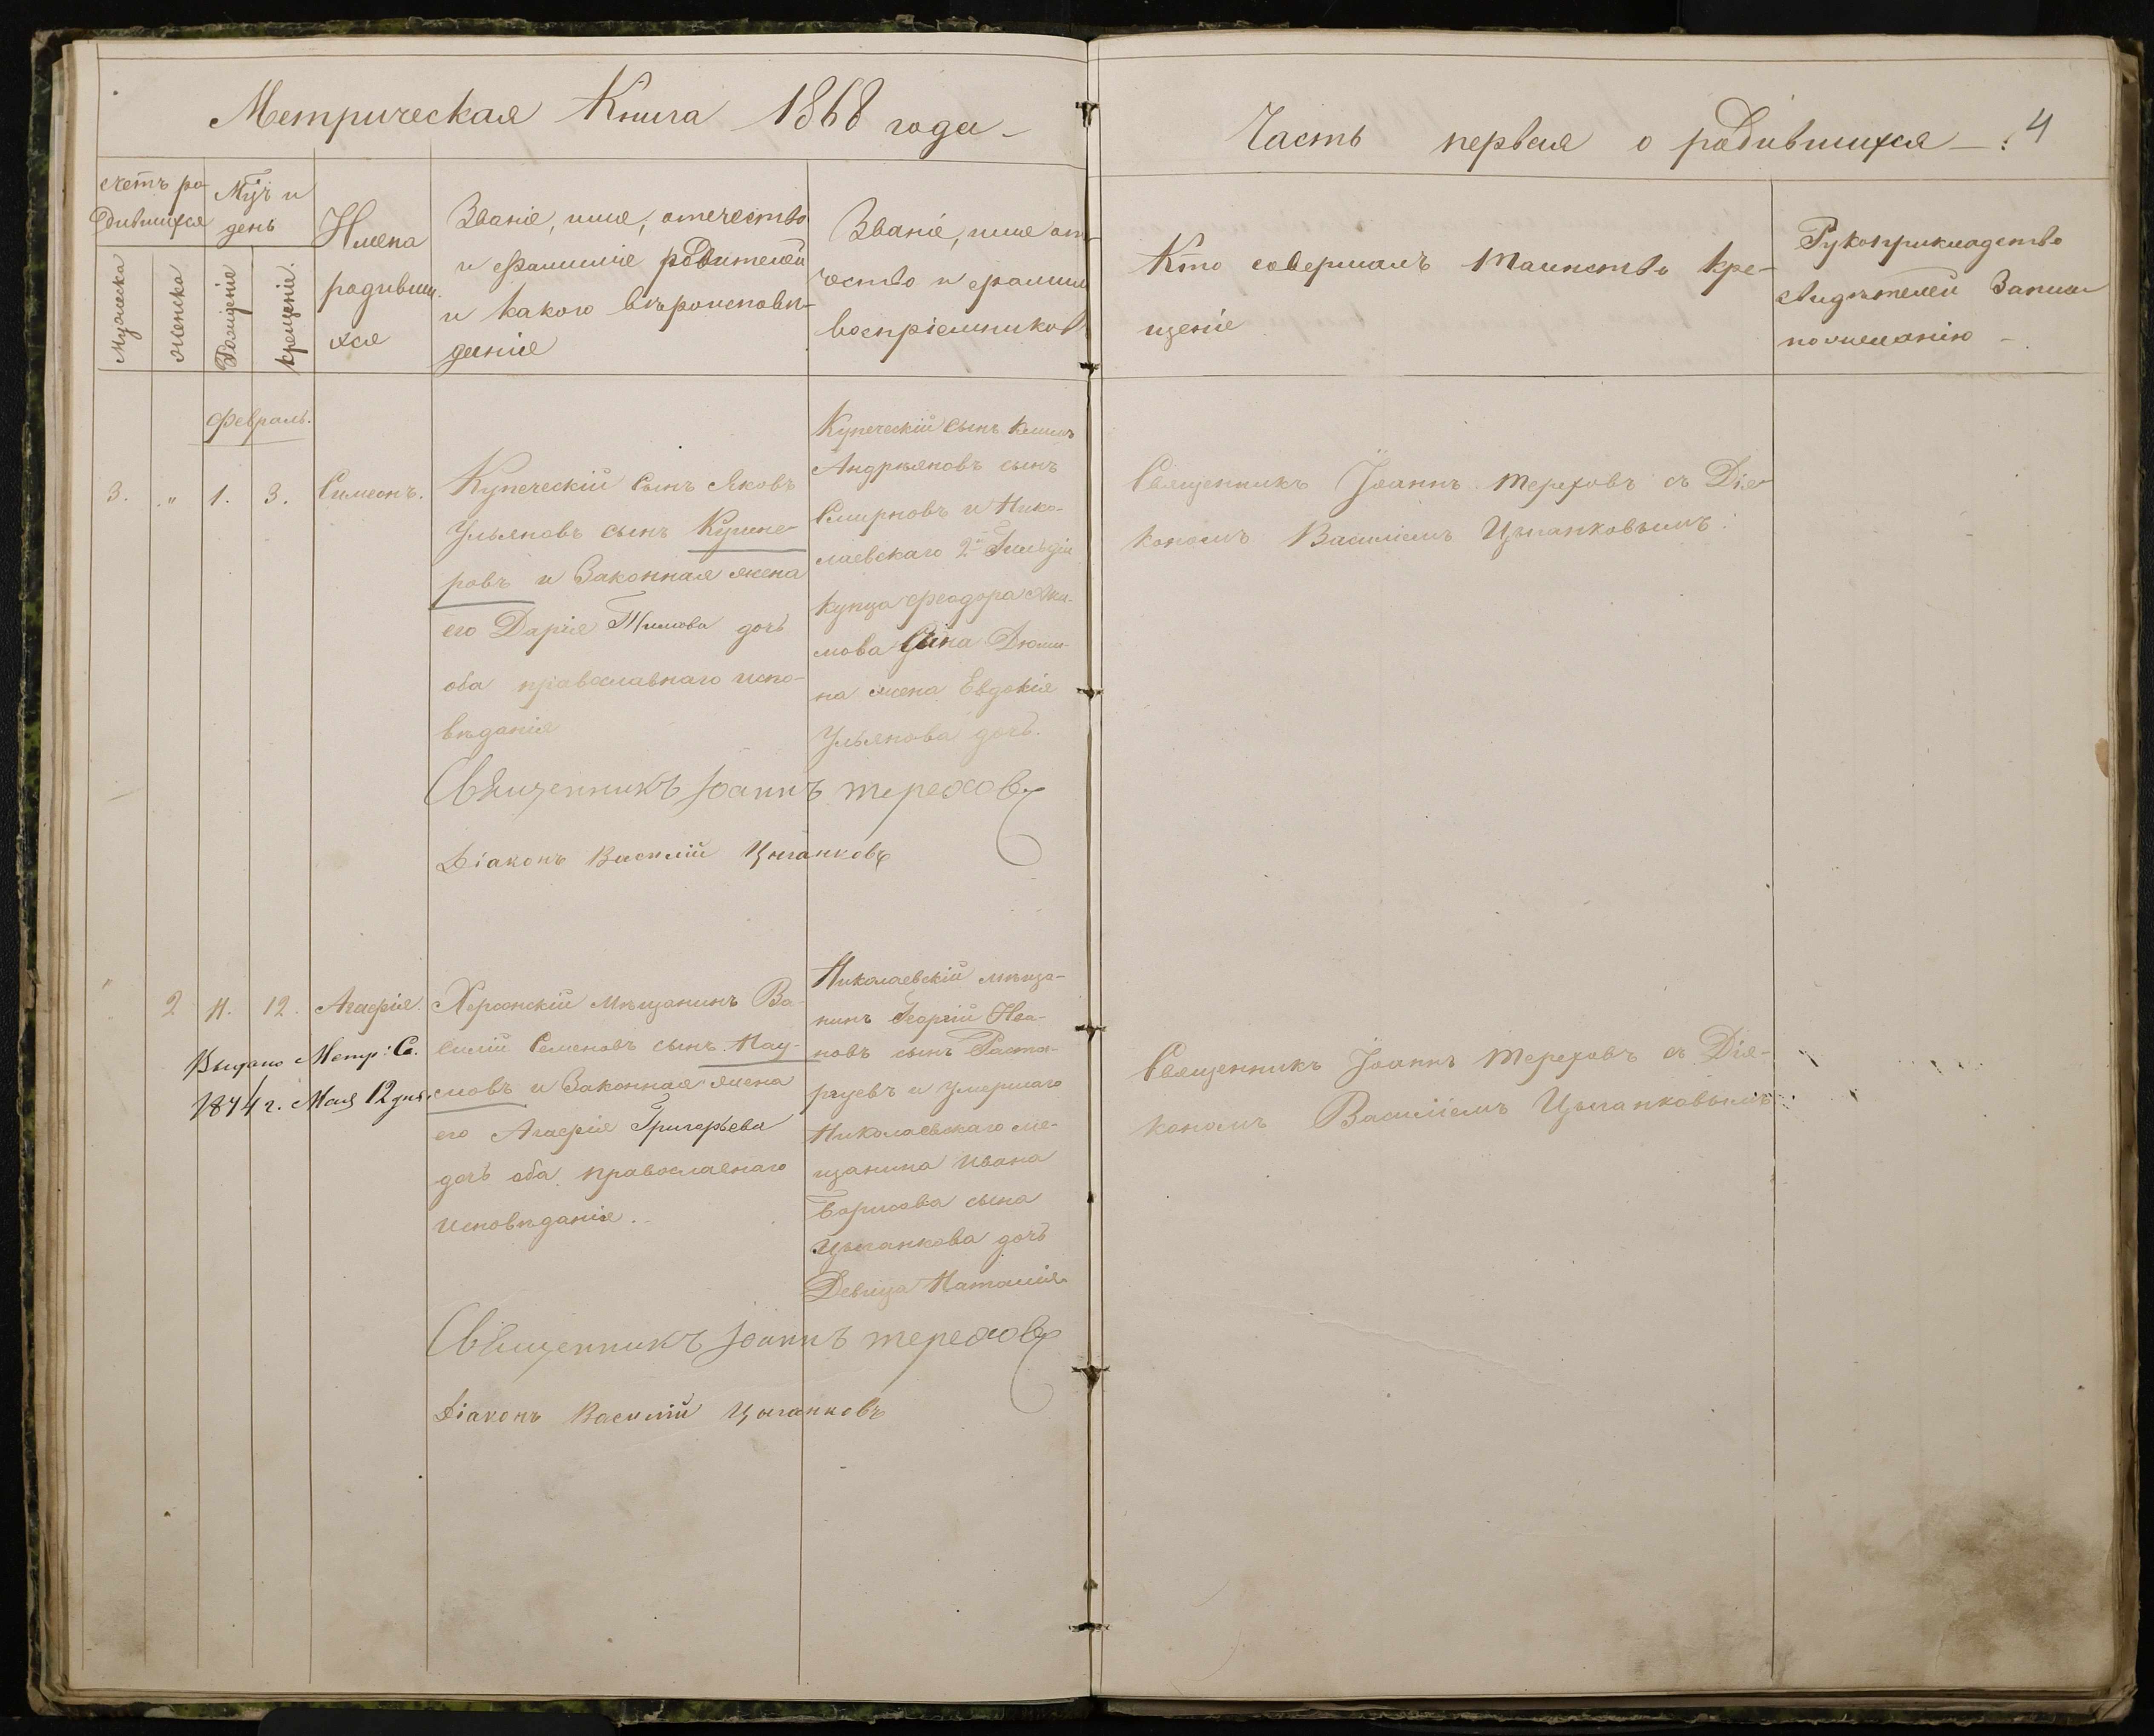 Метрическая Книга 1868 года
Часть первая о родившихся
4
счетъ ро-
дившихся
Мцъ и
день
Мужеска
женска
Рожденіе
крещеніе.
Имена
родивши
хся
Званіе, имя, отечество
и фамиліе родителей
и какого вѣроисповѣ-
деніе
Званіе, имя от
чество и фамил
воспріемников
Кто совершалъ таинство кре-
щеніе
Рукоприкладство
свидѣтелей записи
по желанію
Февраль.
3. „ 1. 3. Симеонъ.
Купеческій Сынъ Яковъ
Ульяновъ сынъ Кушне-
ровъ и Законная жена
его Дарія Тимова дочь
оба православнаго испо-
вѣданія
Купеческій сынъ
Андреяновъ сынъ
Смирновъ и Нико-
лаевскаго 2й Гильдіи
купца Феодора Аки-
мова Сына Дюми-
на жена Евдокія
Ульянова дочь.
Священникъ Іоаннъ Тереховъ съ Діа
кономъ Василіемъ Цыганковымъ.
Священникъ Іоаннъ тереховъ
Діаконъ Василій Цыганковъ
2 11. 12. Агафія.
Выдано Метр: С.
1874 г. Мая 12 дня.
Херсонскій Мѣщанинъ Ва-
силій Семеновъ сынъ Нау-
мовъ и Законная жена
его Агафія Григорьева
дочь оба православнаго
исповѣданія.
Николаевскій мѣща-
нинъ Георгій Ива-
новъ сынъ
и умершаго
Николаевскаго ме-
щанина Ивана
Борисова сына
Цыганкова дочь
Девица Наталія
Священникъ Іоаннъ Тереховъ съ Діа-
кономъ Василіемъ Цыганковымъ
Священникъ Іоаннъ тереховъ
Діаконъ Василій Цыганковъ